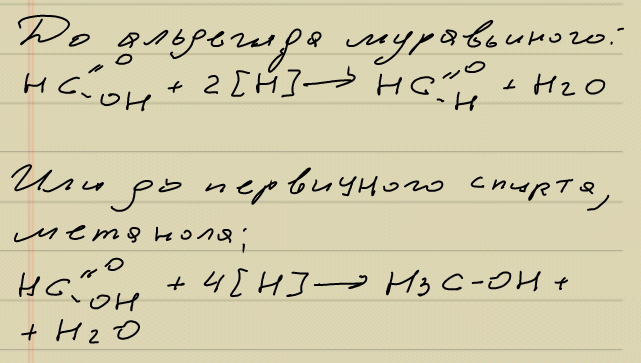 До альдегида муравьиного:
HC=O-OH + 2[H] → HC=O-H + H2O
Или до первичного спирта,
метанола;
HC=O-OH + 4[H] → H3C-OH +
+ H2O